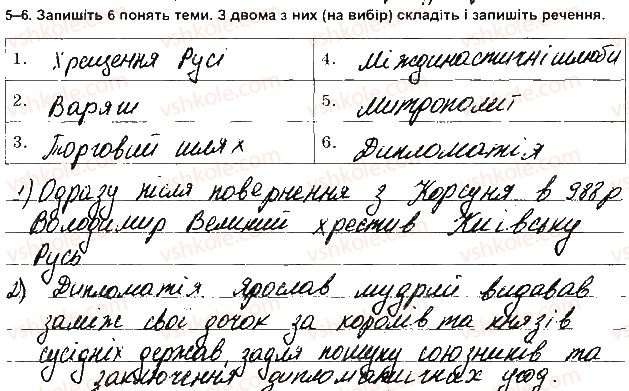 5–6. Запишіть 6 понять теми. З двома з них (на вибір) складіть і запишіть речення.
1. Хрещення Русі
4. Міждинастичні шлюби
2. Варяш
5. Митрополит
3. Торговий шлях
6. Дипломатія
1) Одразу після повернення з Корсуня в 988 р
Володимир Великий хрестив Київську
Русь
2) Дипломатія Ярослав мудрий видавав
заміж свої дочок за королів та князів
сусідніх держав, задля пошуку союзників та
заключення дипломатичних угод.